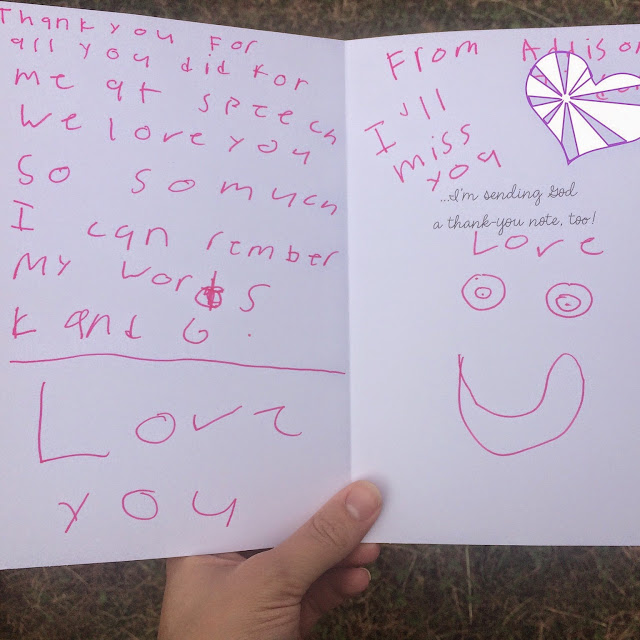 Thank you For
all you did For
me at speech
We love you
So so much
I can rember
My words
K and G.
Love
you
From Addison
I'll
miss
you
...I'm sending God
a thank-you note, too!
Love